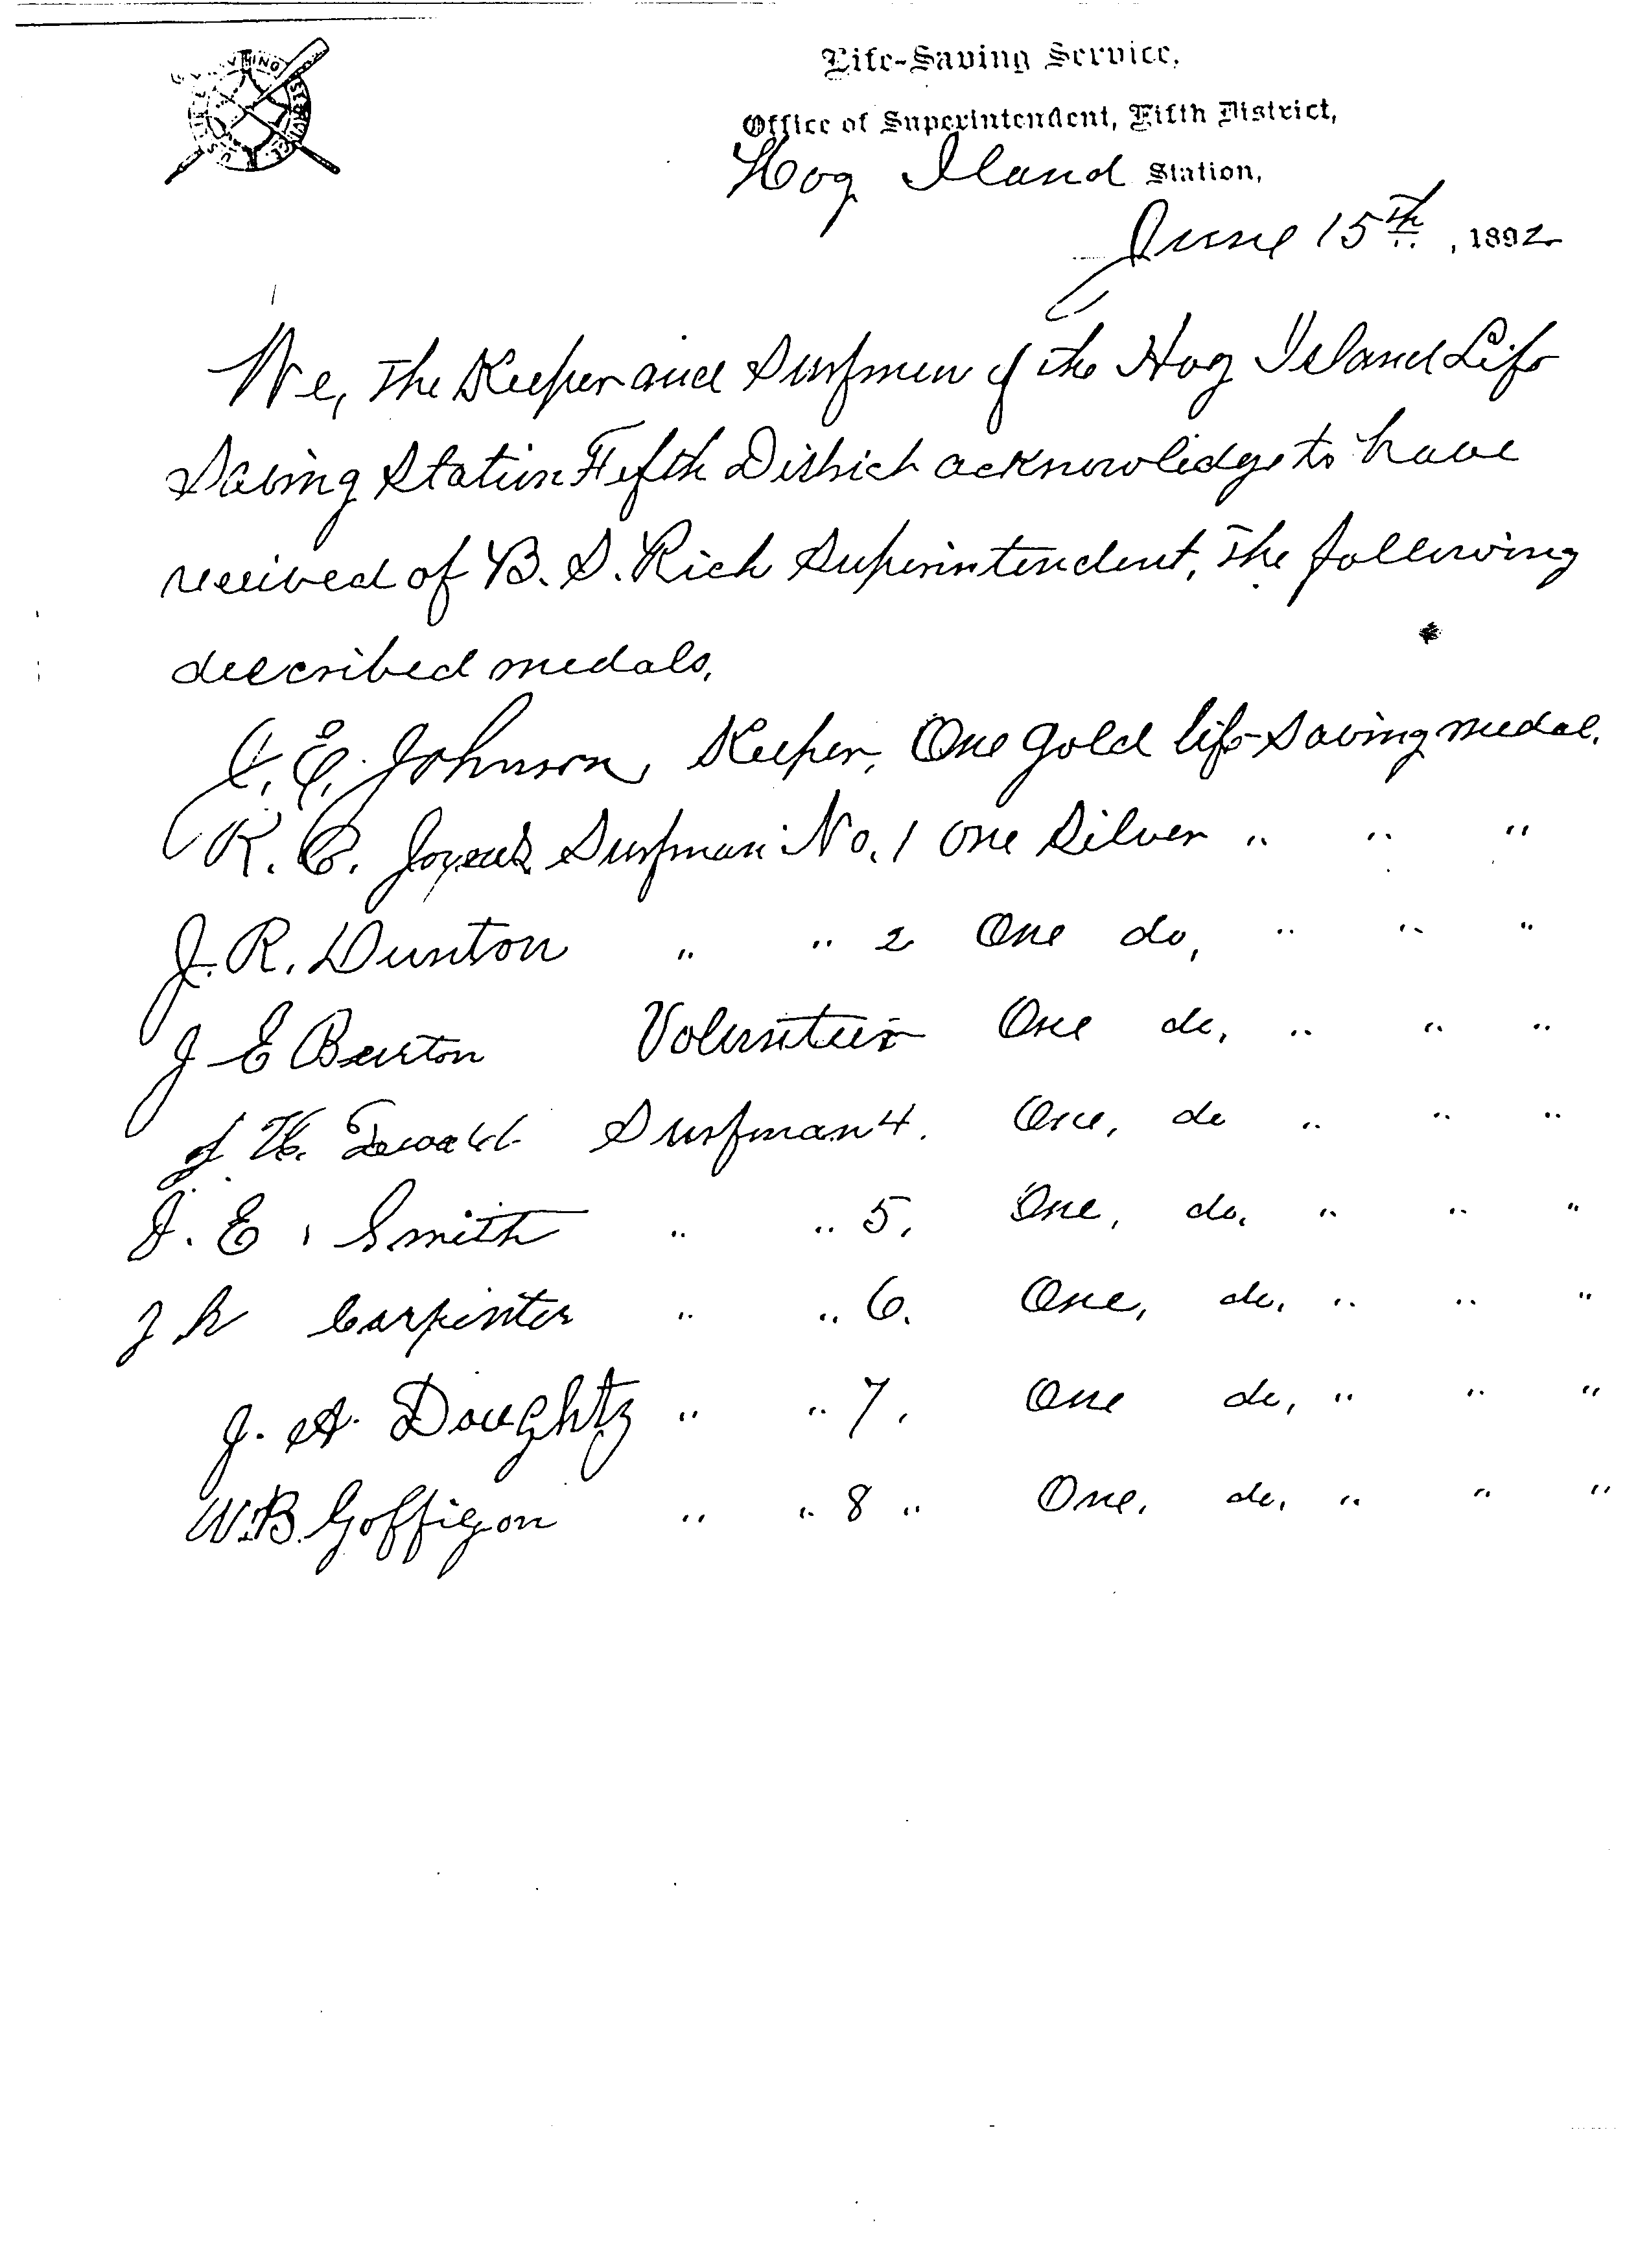 Life-Saving Service,
Office of Superintendent, Fifth District,
Hog Iland Station,
June 15th, 1892
We, The Keeper and Surfmen of the Hog Island Life
Saving Station Fifth District acknowledge to have
received of B. S. Rich Superintendent, The following
described medals.
J. E. Johnson, Keeper, One Gold life-saving medal.
R. C. Surfman No. 1 One Silver " " "
J. R. Dunton " " 2 One do, " " "
J E Barton Volunteer One do, " " "
Surfman 4. One, do " " "
J. E. Smith " " 5. One, do. " " "
J R Carpinter " " 6. One, do, " " "
J. A. Doughty " " 7. One do, " " "
W.B. Goffigon " " 8 " One. do, " " "